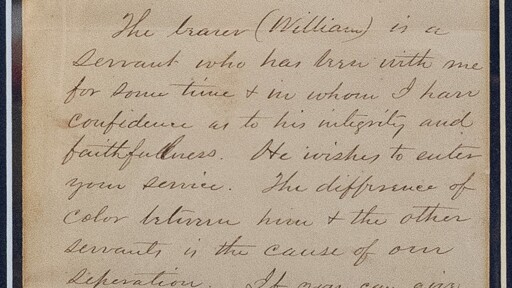 The bearer (William) is a
servant who has been with me
for some time & in whom I have
confidence as to his integrity and
faithfullness. He wishes to enter
your service. The difference of
color between him & the other
servants is the cause of our
seperation. If you can give